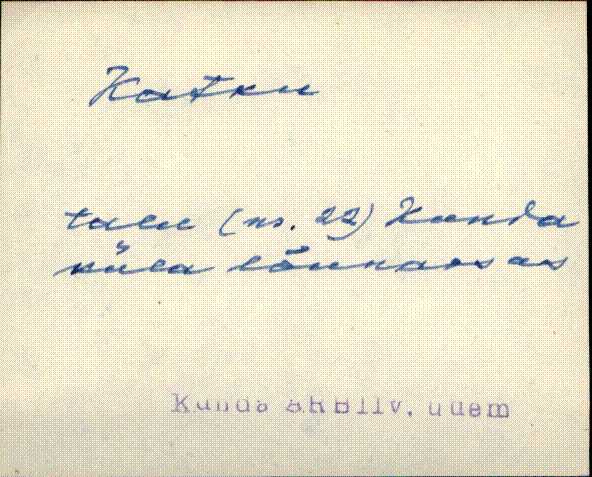 Katku
talu (nr. 22) Kunda
küla lõunaosas
Kunda